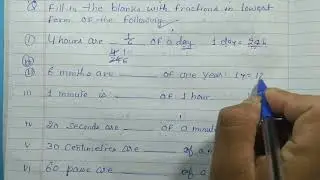 Q. Fill in the blanks with fractions in lowest
form of the following
(i) 4 hours are 1/6 of a day 1 day = 24h
4 1
24 6
(ii) 6 months are ___ of one year 1y = 12
iii) 1 minute is ___ of 1 hour
iv) 20 seconds are ___ of a minute
v) 30 centimetres are ___ of a
vi) 60 paise are ___ of a